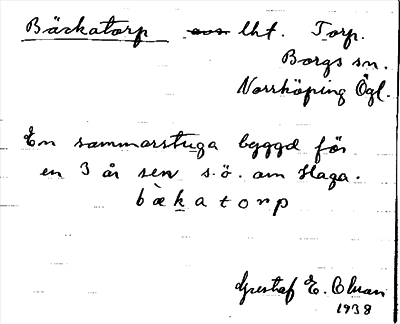 Bäckatorp lht. Torp.
Borgs sn.
Norrköping Ögl.
En sommarstuga byggd för
en 3 år sen s.ö. om Haga.
bækatorp
Gustaf E. Olman
1938